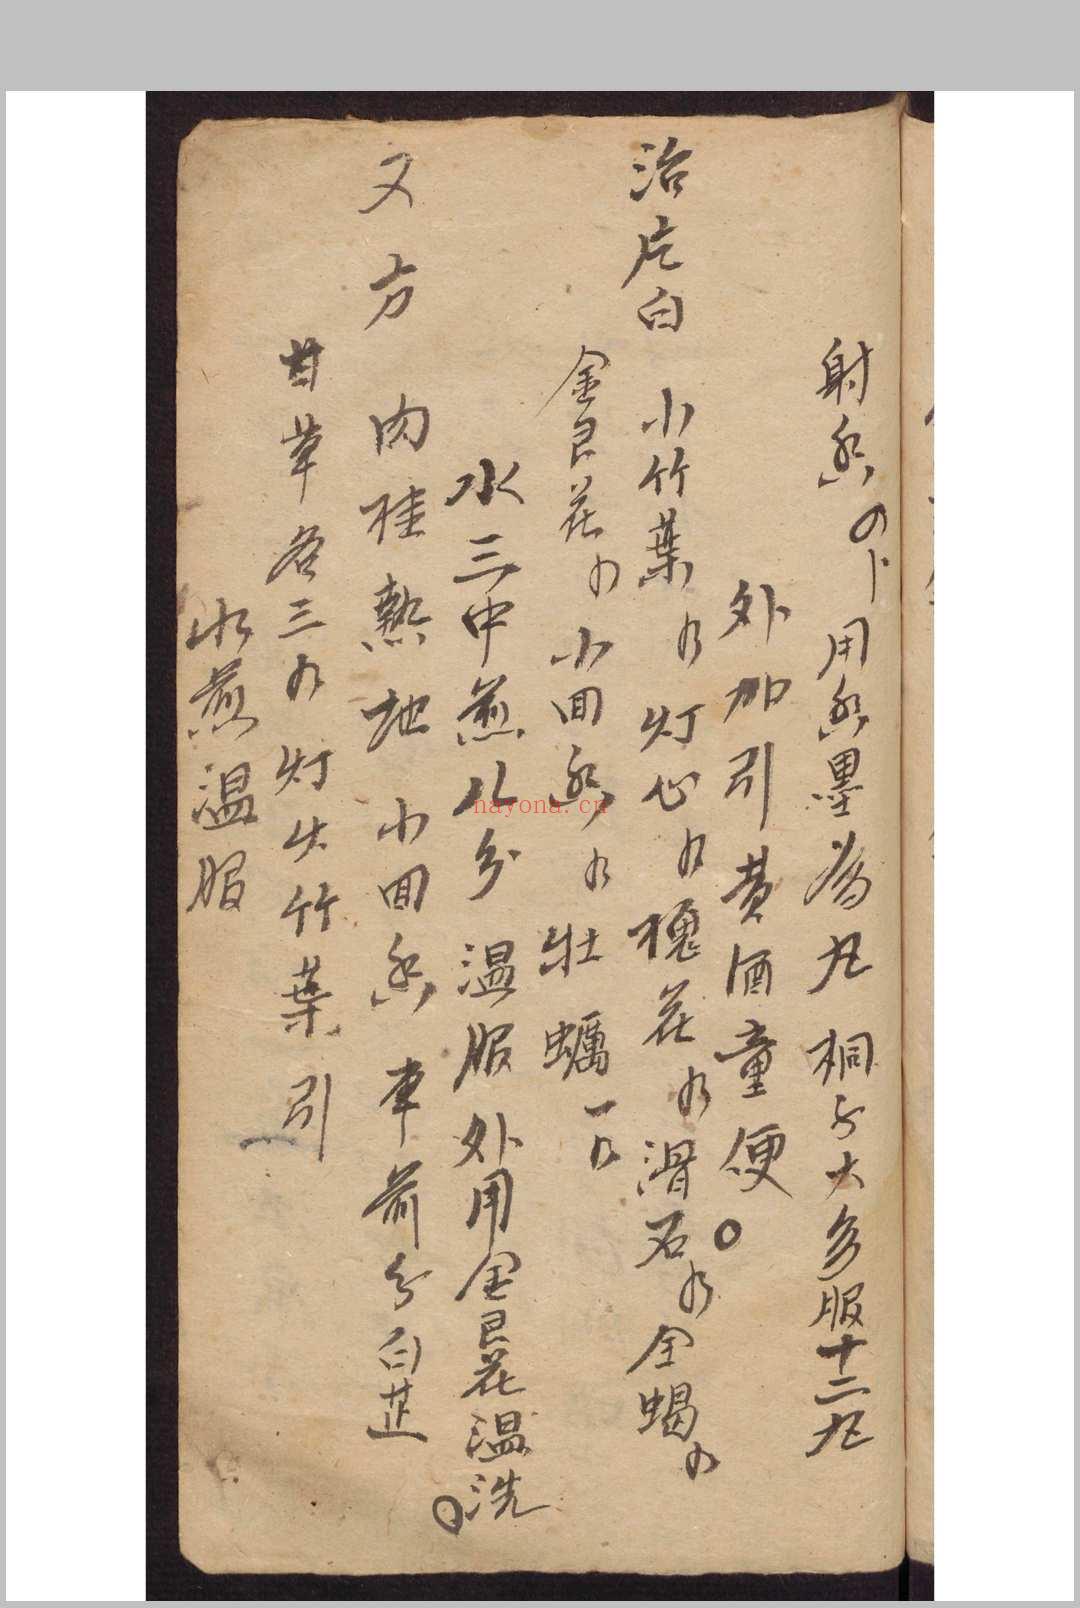 射香 用香墨為丸 桐子大每服十二丸
外加引黄酒童便○
治疘白 小竹葉 灯心 槐花 滑石 全蝎
金艮花 小回香 牡蠣一
水三中煎八分 温服外用金艮花温洗○
又方 肉桂 熟地 小回香 車前子 白芷
甘草各三 灯心竹葉引
水煎温服
nayona.cn